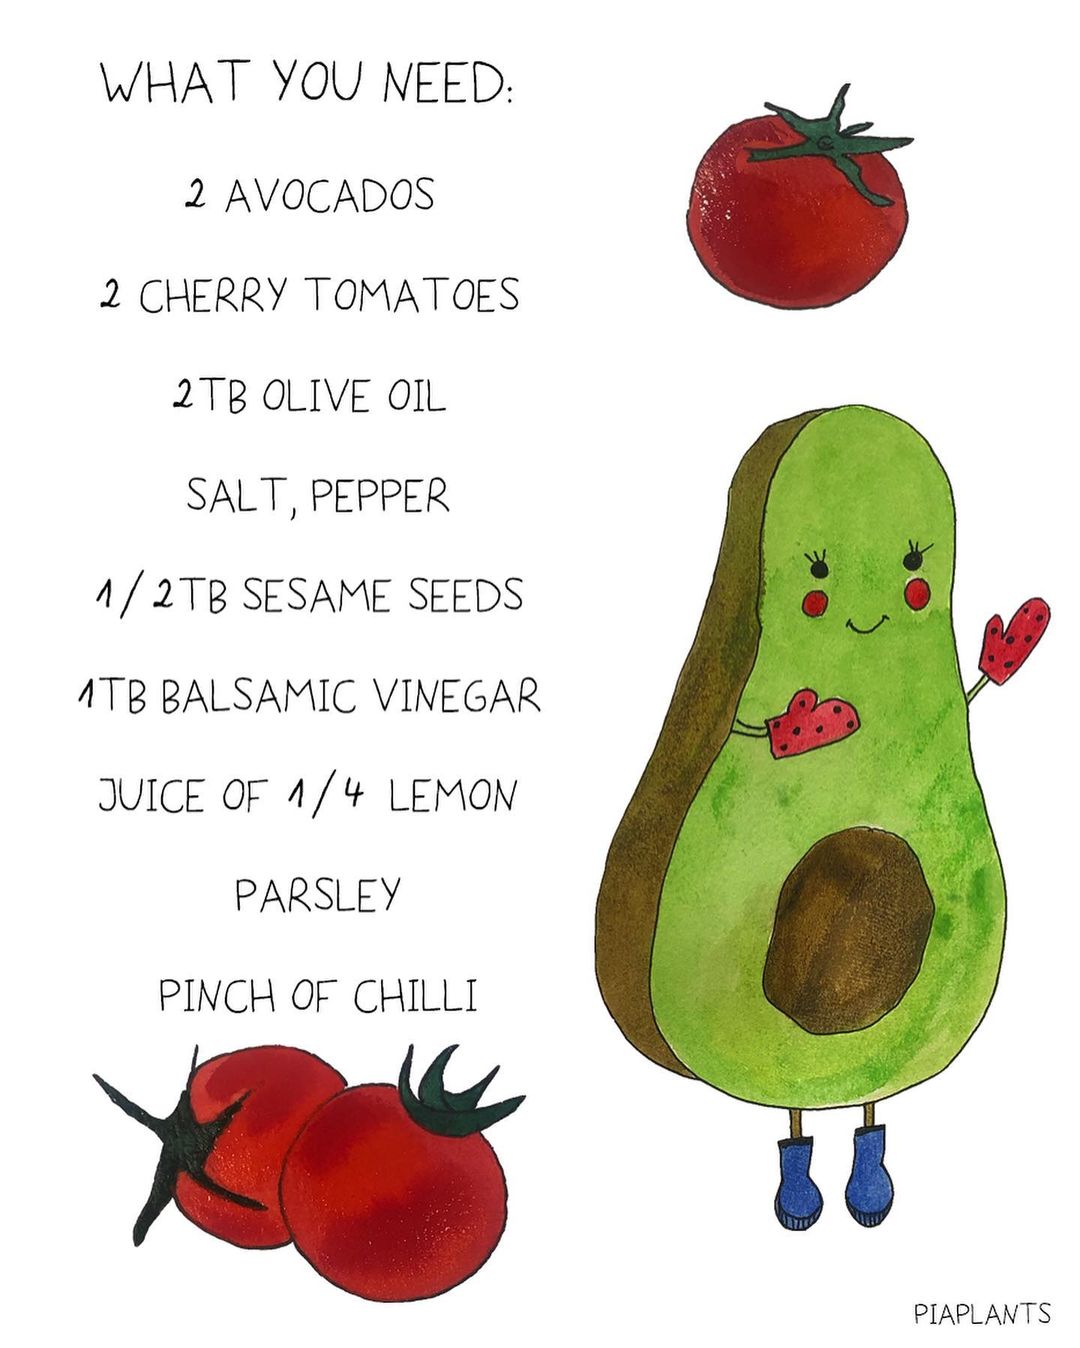 WHAT YOU NEED:
2 AVOCADOS
2 CHERRY TOMATOES
2TB OLIVE OIL
SALT, PEPPER
1/2TB SESAME SEEDS
1TB BALSAMIC VINEGAR
JUICE OF 1/4 LEMON
PARSLEY
PINCH OF CHILLI
PIAPLANTS